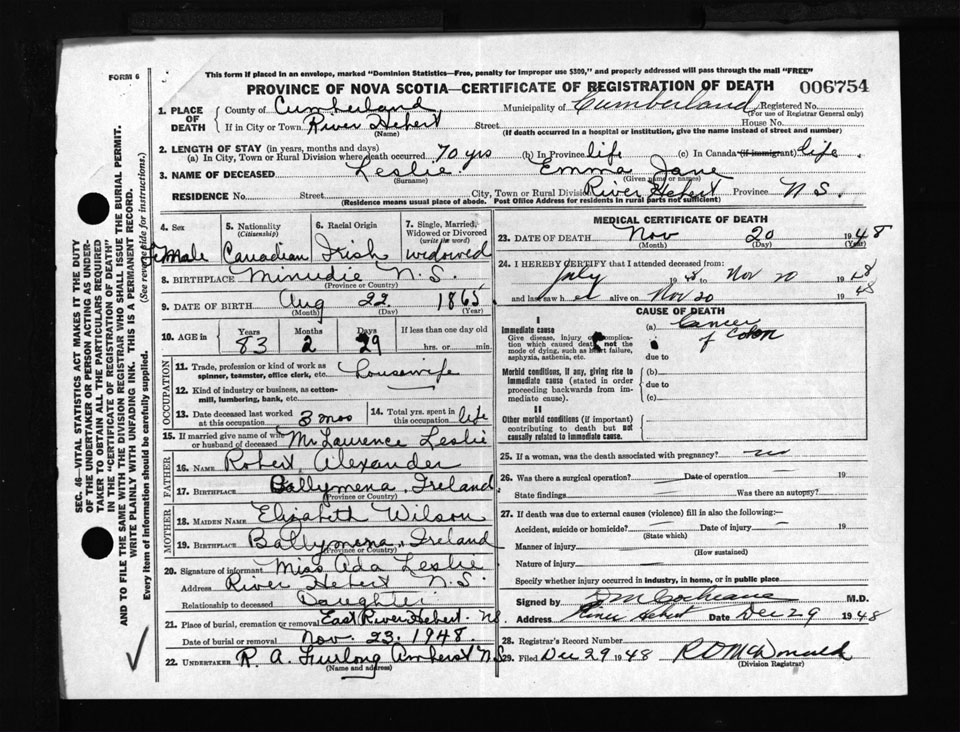 FORM 6
This form if placed in an envelope, marked "Dominion Statistics—Free, penalty for improper use $300," and properly addressed will pass through the mail "FREE"
PROVINCE OF NOVA SCOTIA—CERTIFICATE OF REGISTRATION OF DEATH 006754
1. PLACE OF DEATH County of Cumberland Municipality of Cumberland Registered No.
(For use of Registrar General only)
If in City or Town River Hebert Street House No.
(Name) (If death occurred in a hospital or institution, give the name instead of street and number)
2. LENGTH OF STAY (in years, months and days)
(a) In City, Town or Rural Division where death occurred 70 yrs (b) In Province life (c) In Canada (if immigrant) life.
3. NAME OF DECEASED Leslie. Emma Jane
(Surname) (Given name or names)
RESIDENCE No. Street City, Town or Rural Division River Hebert Province N.S.
(Residence means usual place of abode. Post Office Address for residents in rural parts not sufficient)
4. Sex 5. Nationality (Citizenship) 6. Racial Origin 7. Single, Married, Widowed or Divorced (write the word)
Female Canadian Irish widowed
8. BIRTHPLACE Minudie N.S.
(Province or Country)
9. DATE OF BIRTH Aug 22 1865
(Month) (Day) (Year)
10. AGE in Years Months Days If less than one day old
83 2 29 hrs. or min.
OCCUPATION
11. Trade, profession or kind of work as spinner, teamster, office clerk, etc. Housewife
12. Kind of industry or business, as cotton-mill, lumbering, bank, etc.
13. Date deceased last worked at this occupation 3 mos 14. Total yrs. spent in this occupation life
15. If married give name of wife or husband of deceased Mr Laurence Leslie
FATHER
16. NAME Robert Alexander
17. BIRTHPLACE Ballymena, Ireland
(Province or Country)
MOTHER
18. MAIDEN NAME Elizabeth Wilson
19. BIRTHPLACE Ballymena, Ireland
(Province or Country)
20. Signature of informant Miss Ada Leslie
Address River Hebert N.S.
Relationship to deceased Daughter
21. Place of burial, cremation or removal East River Hebert. NS
Date of burial or removal Nov. 23. 1948.
22. UNDERTAKER R. A. Furlong Amherst N.S.
(Name and address)
MEDICAL CERTIFICATE OF DEATH
23. DATE OF DEATH Nov 20 1948
(Month) (Day) (Year)
24. I HEREBY CERTIFY that I attended deceased from:
July 1948 Nov 20 1948
and last saw h er alive on Nov 20 1948
CAUSE OF DEATH
I
Immediate cause (a) Cancer of Colon
Give disease, injury or complication which caused death, not the mode of dying, such as heart failure, asphyxia, asthenia, etc.
due to
Morbid conditions, if any, giving rise to immediate cause (stated in order proceeding backwards from immediate cause). (b)
due to
(c)
II
Other morbid conditions (if important) contributing to death but not causally related to immediate cause.
25. If a woman, was the death associated with pregnancy? no
26. Was there a surgical operation? Date of operation 19
State findings Was there an autopsy?
27. If death was due to external causes (violence) fill in also the following:—
Accident, suicide or homicide? Date of injury 19
(State which)
Manner of injury
(How sustained)
Nature of injury
Specify whether injury occurred in industry, in home, or in public place
Signed by D M Cochrane M.D.
Address River Hebert Date Dec 29 1948
28. Registrar's Record Number
29. Filed Dec 29 1948 R D McDonald
(Division Registrar)
SEC. 46—VITAL STATISTICS ACT MAKES IT THE DUTY
OF THE UNDERTAKER OR PERSON ACTING AS UNDER-
TAKER TO OBTAIN ALL THE PARTICULARS REQUIRED
IN THE "CERTIFICATE OF REGISTRATION OF DEATH"
AND TO FILE THE SAME WITH THE DIVISION REGISTRAR WHO SHALL ISSUE THE BURIAL PERMIT.
WRITE PLAINLY WITH UNFADING INK. THIS IS A PERMANENT RECORD.
Every item of Information should be carefully supplied. (See reverse side for instructions.)